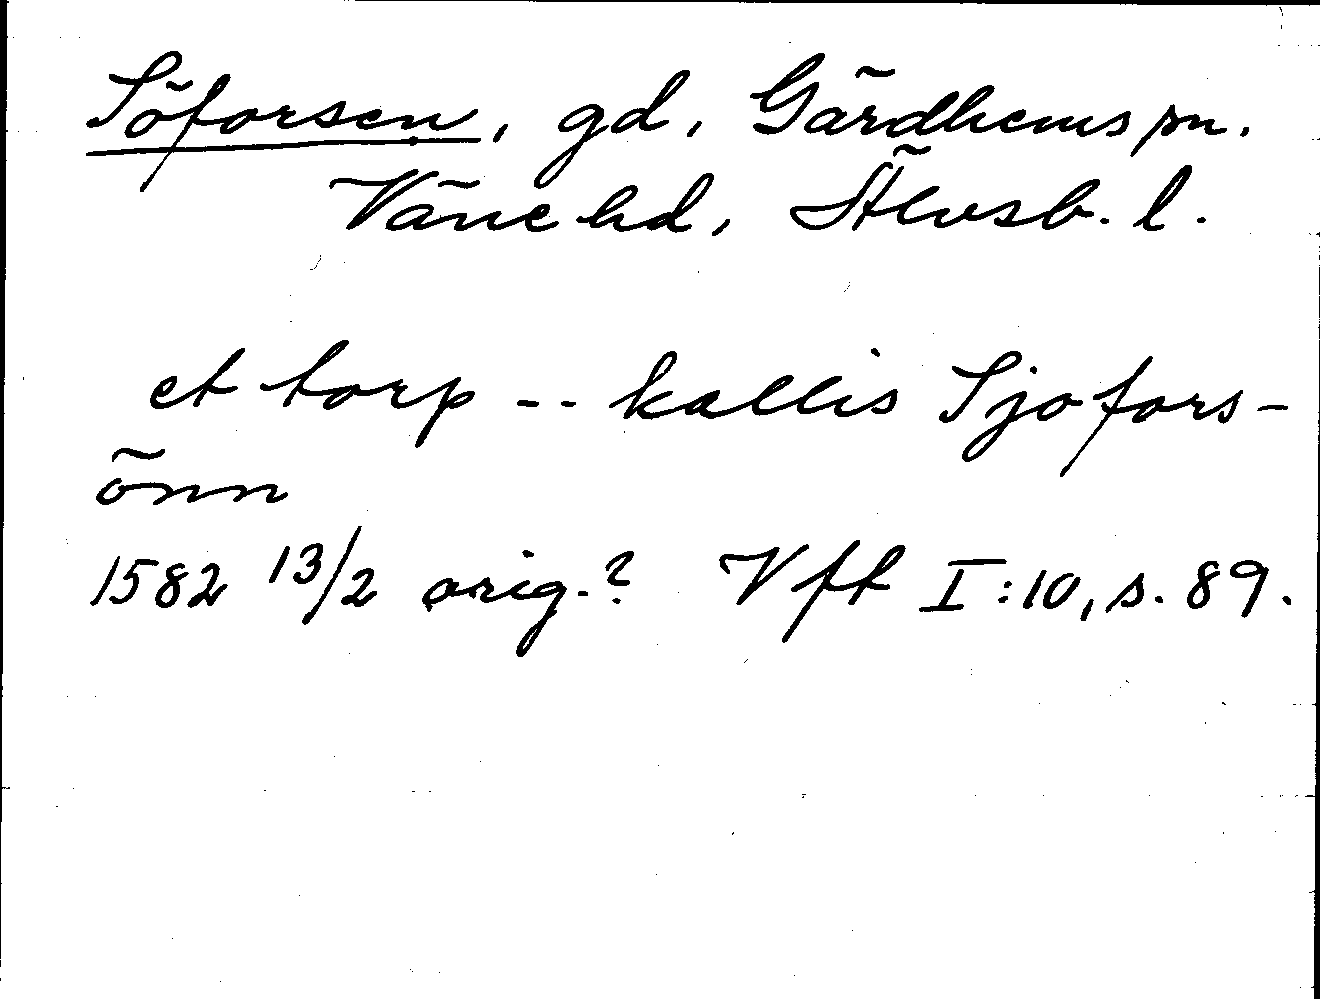 Söforsen, gd, Gärdhems sn.
Väne hd, Älvsb. l.
et torp -- kallis Sjofors-
önn
1582 13/2 orig.? Vft I:10, s. 89.